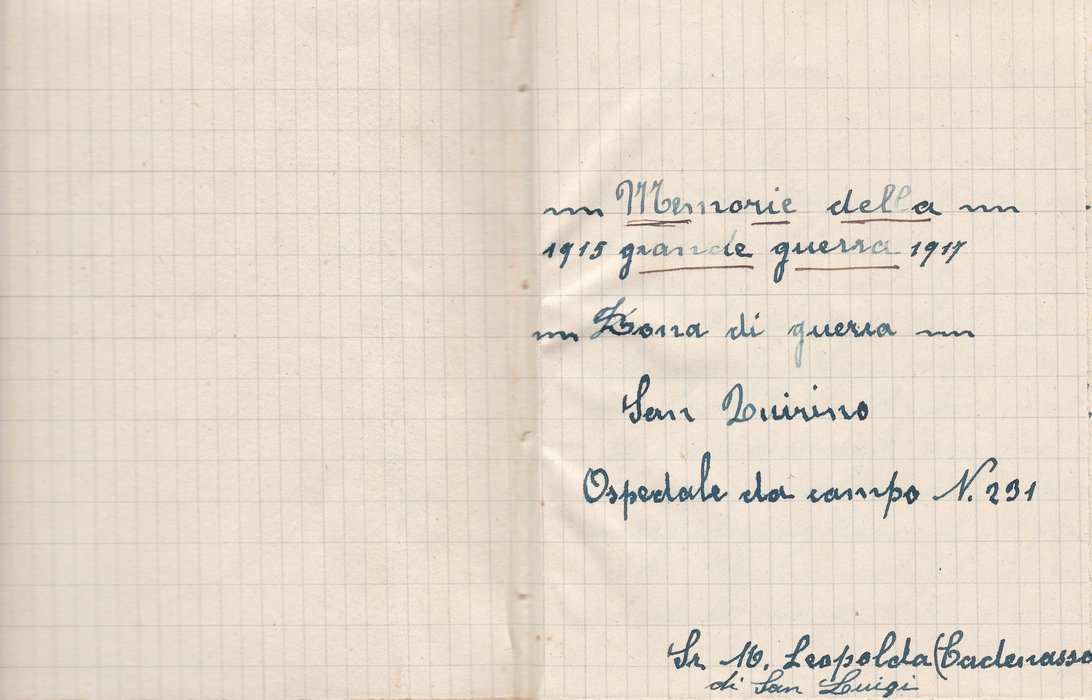 Memorie della
1915 grande guerra 1917
Zona di guerra
San Quirino
Ospedale da campo N. 231
Sr. M. Leopolda (Cadenasso
di San Luigi